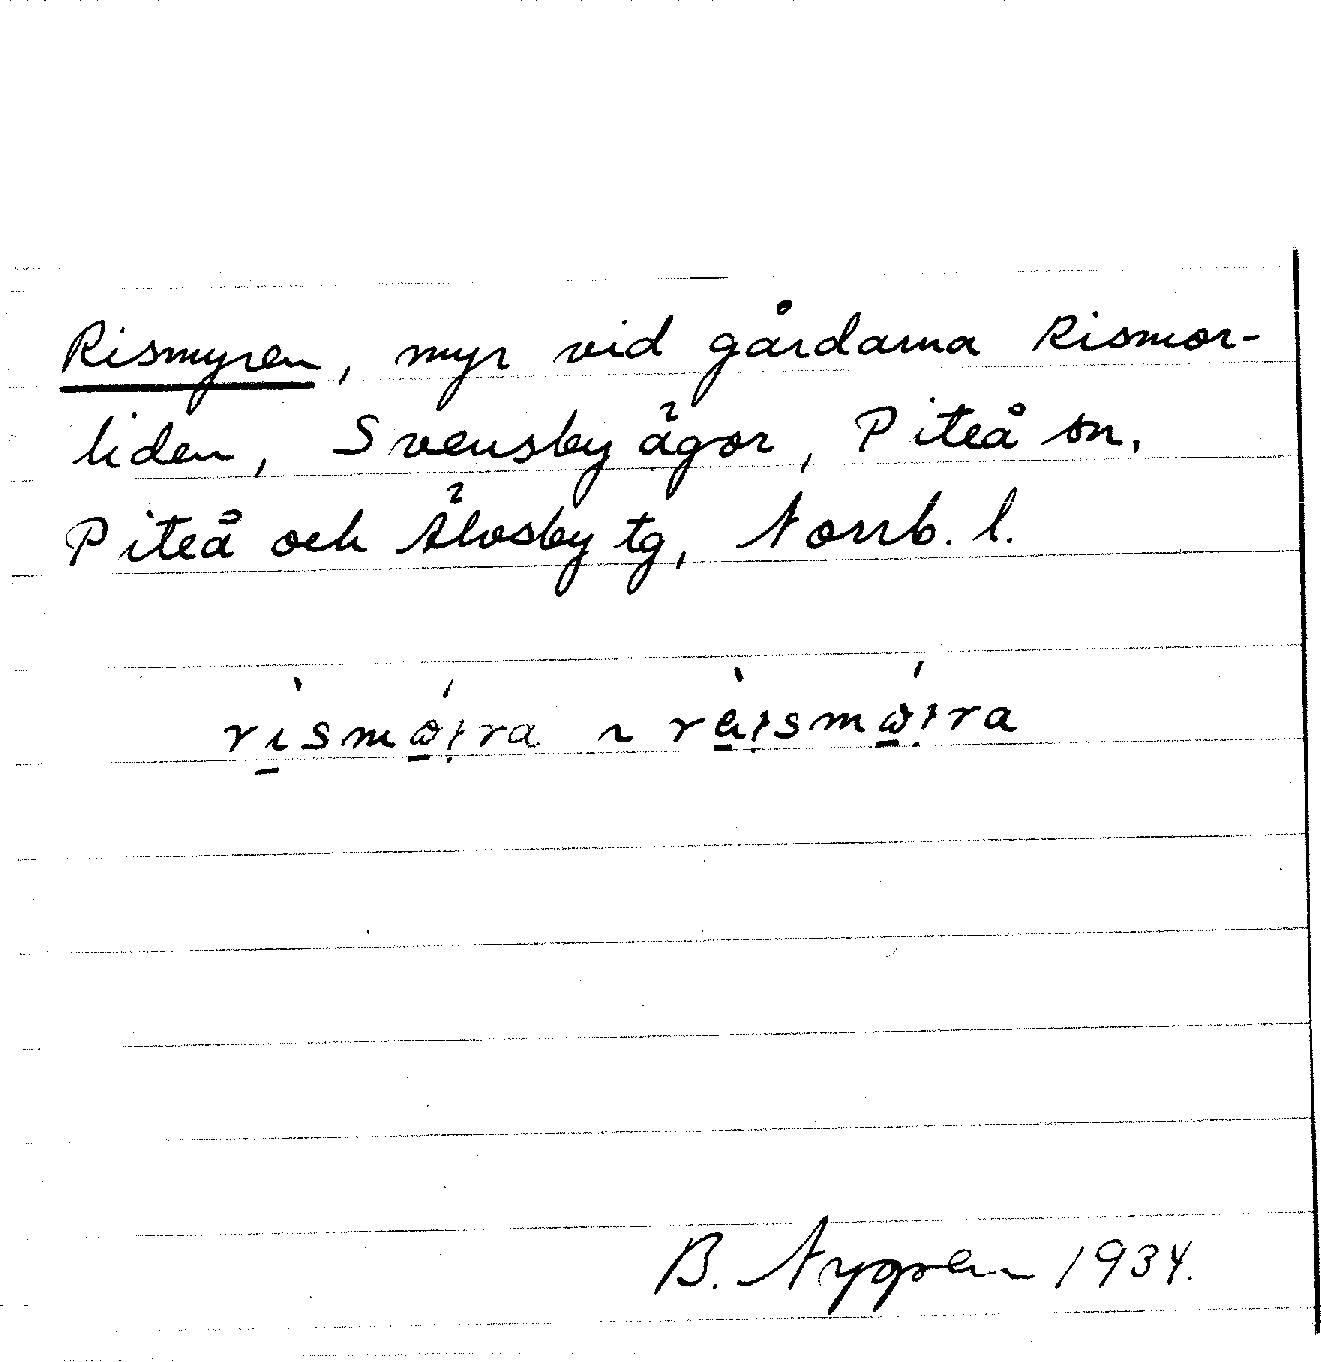 Rismyren, myr vid gårdarna Rismor-
liden, Svensby ägor, Piteå sn,
Piteå och Älvsby tg, Norrb. l.
B. Nygren 1934.